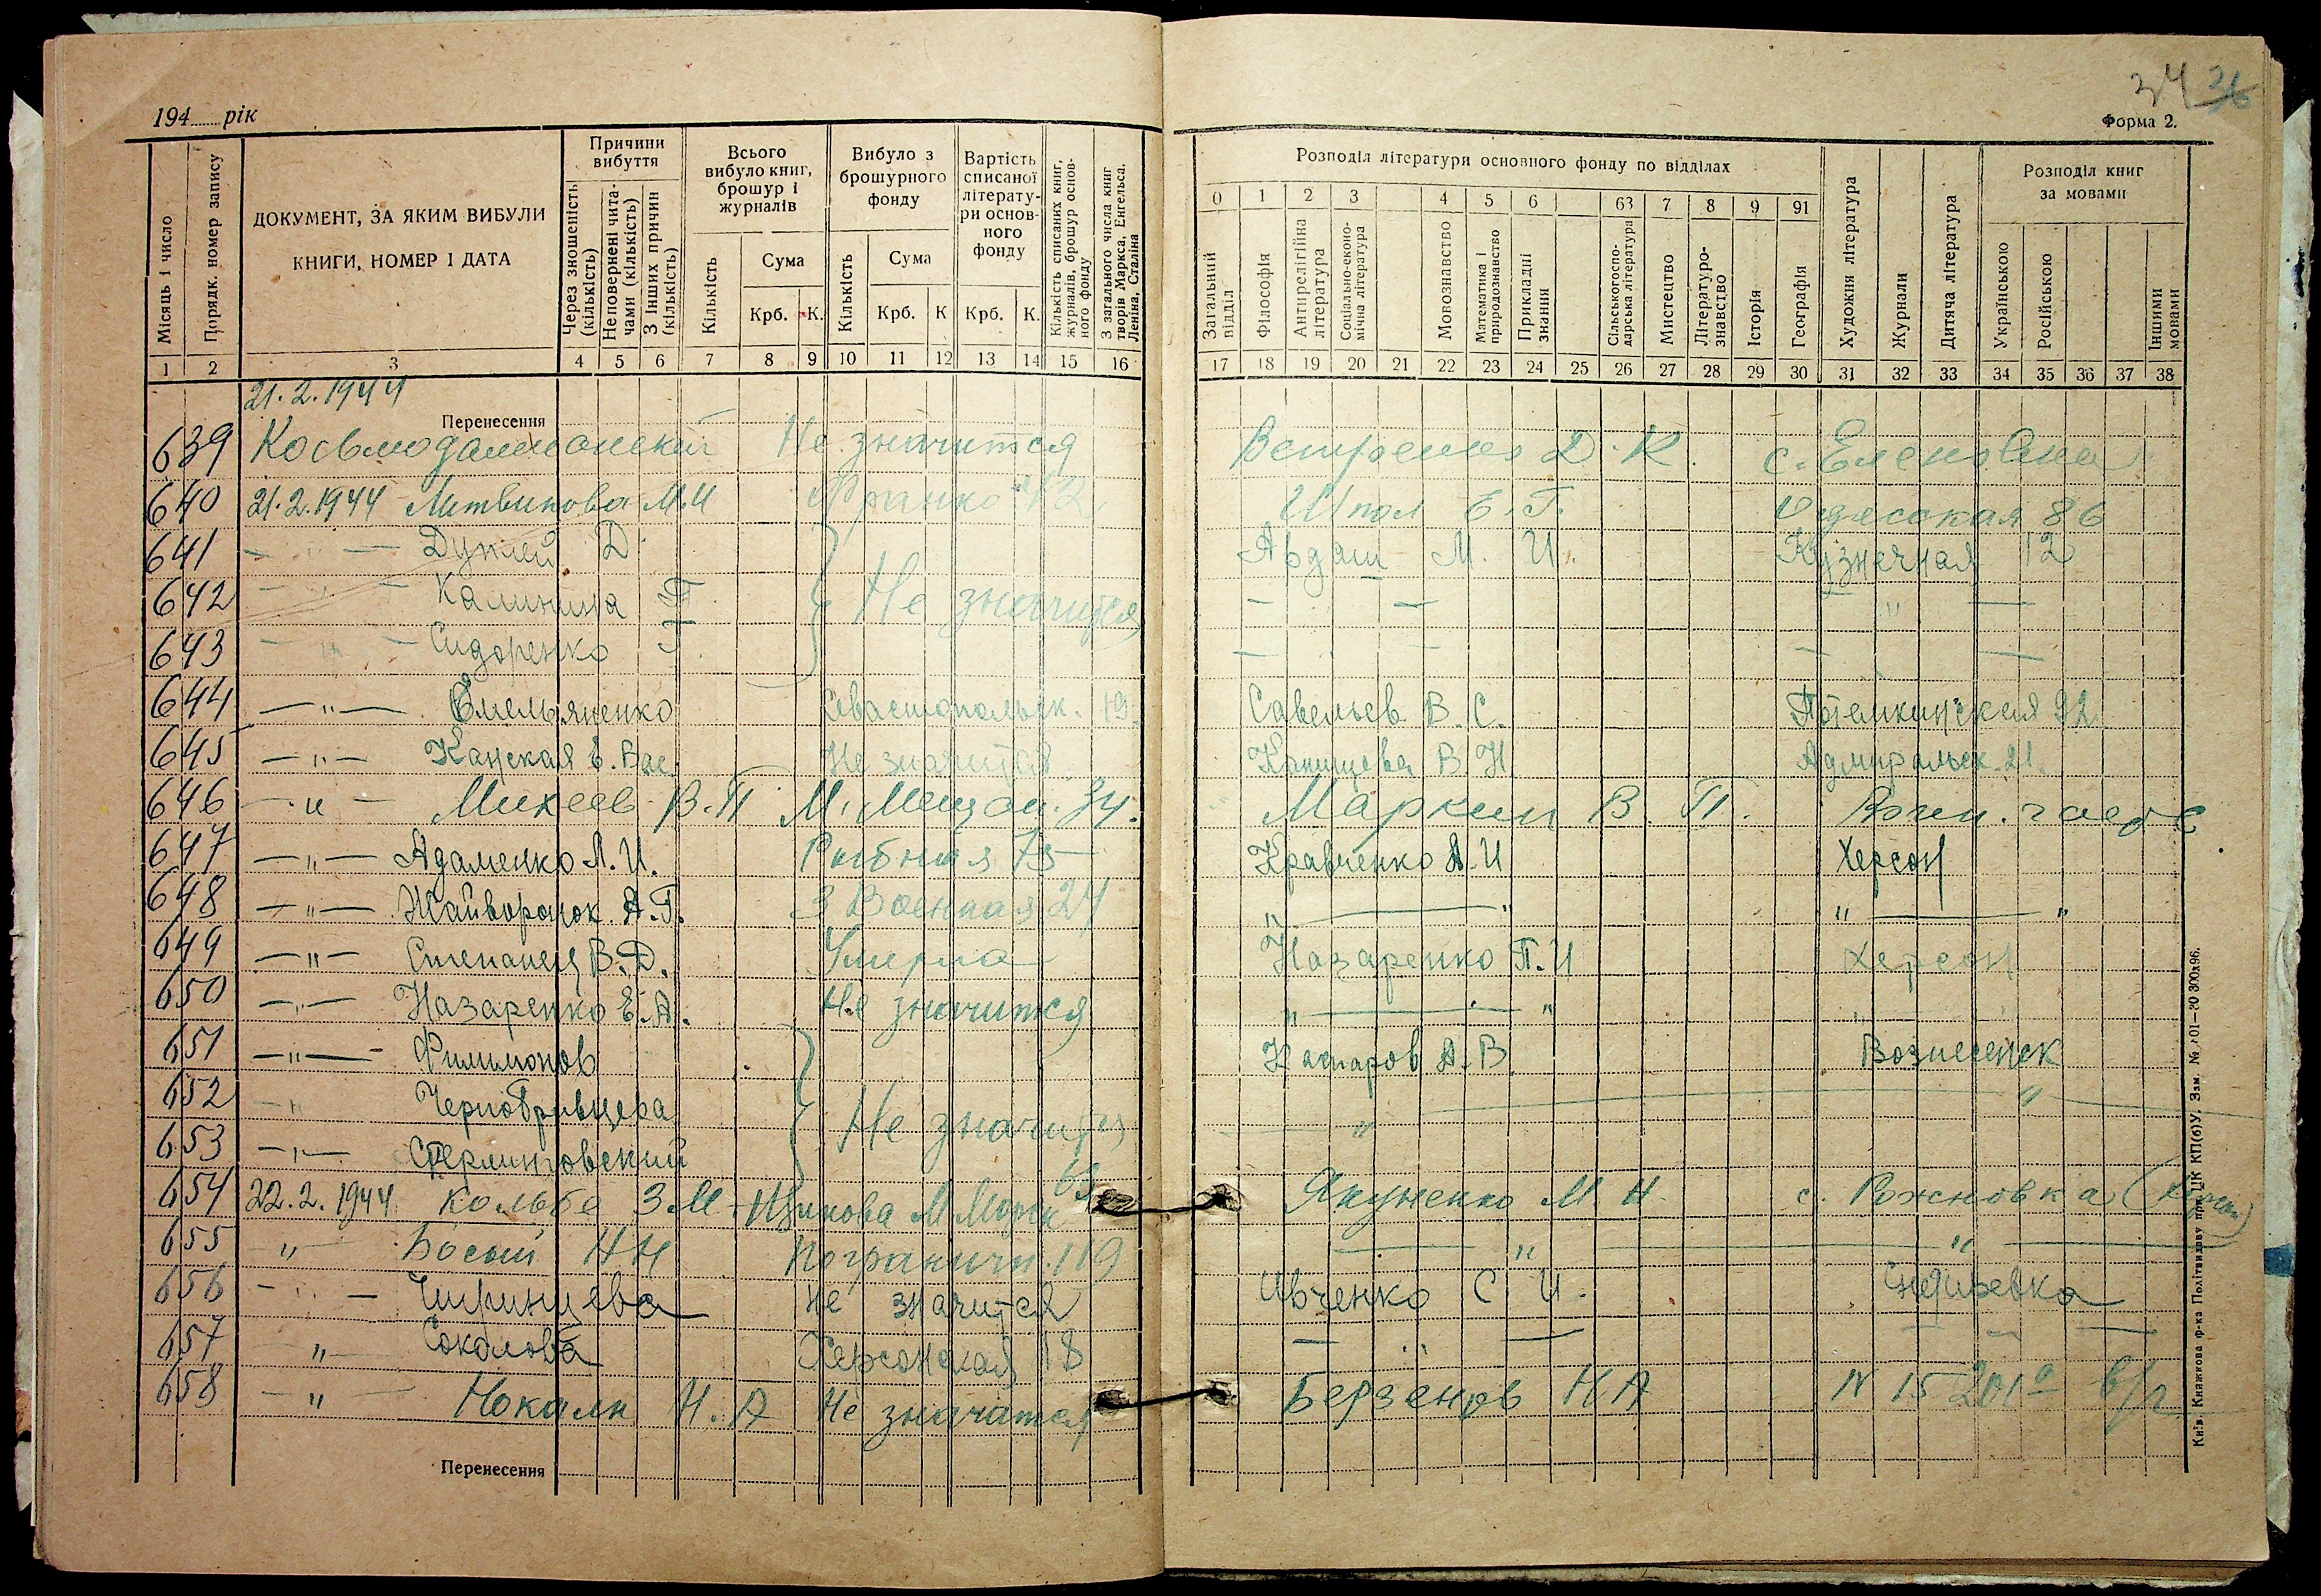 34 36
194 рік
Форма 2.
Місяць і число
Порядк. номер запису
ДОКУМЕНТ, ЗА ЯКИМ ВИБУЛИ
КНИГИ, НОМЕР І ДАТА
Причини вибуття
Через зношеність (кількість)
Неповернені читачами (кількість)
З інших причин (кількість)
Всього вибуло книг, брошур і журналів
Кількість
Сума
Крб. К.
Вибуло з брошурного фонду
Кількість
Сума
Крб. К
Вартість списаної літератури основного фонду
Крб. К.
Кількість списаних книг, журналів, брошур основного фонду
З загального числа книг творів Маркса, Енгельса, Леніна, Сталіна
Розподіл літератури основного фонду по відділах
0 1 2 3 4 5 6 63 7 8 9 91
Загальний відділ
Філософія
Антирелігійна література
Соціально-економічна література
Мовознавство
Математика і природознавство
Прикладні знання
Сільськогосподарська література
Мистецтво
Літературознавство
Історія
Географія
Художня література
Журнали
Дитяча література
Розподіл книг за мовами
Українською
Російською
Іншими мовами
1 2 3 4 5 6 7 8 9 10 11 12 13 14 15 16
17 18 19 20 21 22 23 24 25 26 27 28 29 30 31 32 33 34 35 36 37 38
21.2.1944
Перенесення
639 Не значится Д. К. с. Еленовка
640 21.2.1944 Литвинова М.И Франко Шпол Е. Г. Одесская 86
641 — " — Д Авдаш М. И. Кузнечная 12
642 — " — Калинина Т Не значится — — " —
643 — " — Сидоренко Г — — — —
644 — " — Емельяненко Севастопольск. 19. Савельев В. С. Потемкинская 92
645 — " — Канская Е. Вас. Не значится Канищева В. Н Адмиральск. 21.
646 — " — Микеев В. П М. Мещан. 34. Маркин В. П.
647 — " — Адаменко Л. И. Рыбная 75 Кравченко А. И Херсон
648 — " — Жайворонок А. Г. 3 Военная 24 " — " " — "
649 — " — Степанец В. Д. Умерла Назаренко П. И Херсон
650 — " — Назаренко Е. А. Не значится " — " "
651 — " — Филимонов Комаров А. В. Вознесенск
652 — " Чернобривцева Не значится "
653 — " — "
654 22.2.1944 Кольбе З М М Морск 63 Якуненко М Н с. Рожновка
655 " Босый Н Н Погранич. 119 — " — " —
656 — " — Чиринцева Не значится Ивченко С. И.
657 — " — Соколова Херсонская 18 — " — — —
658 — " — Н. А Не значится Берзенов Н А N 15201а
Перенесення
Київ. Книжкова ф-ка Політвидаву при ЦК КП(б)У. Зам.